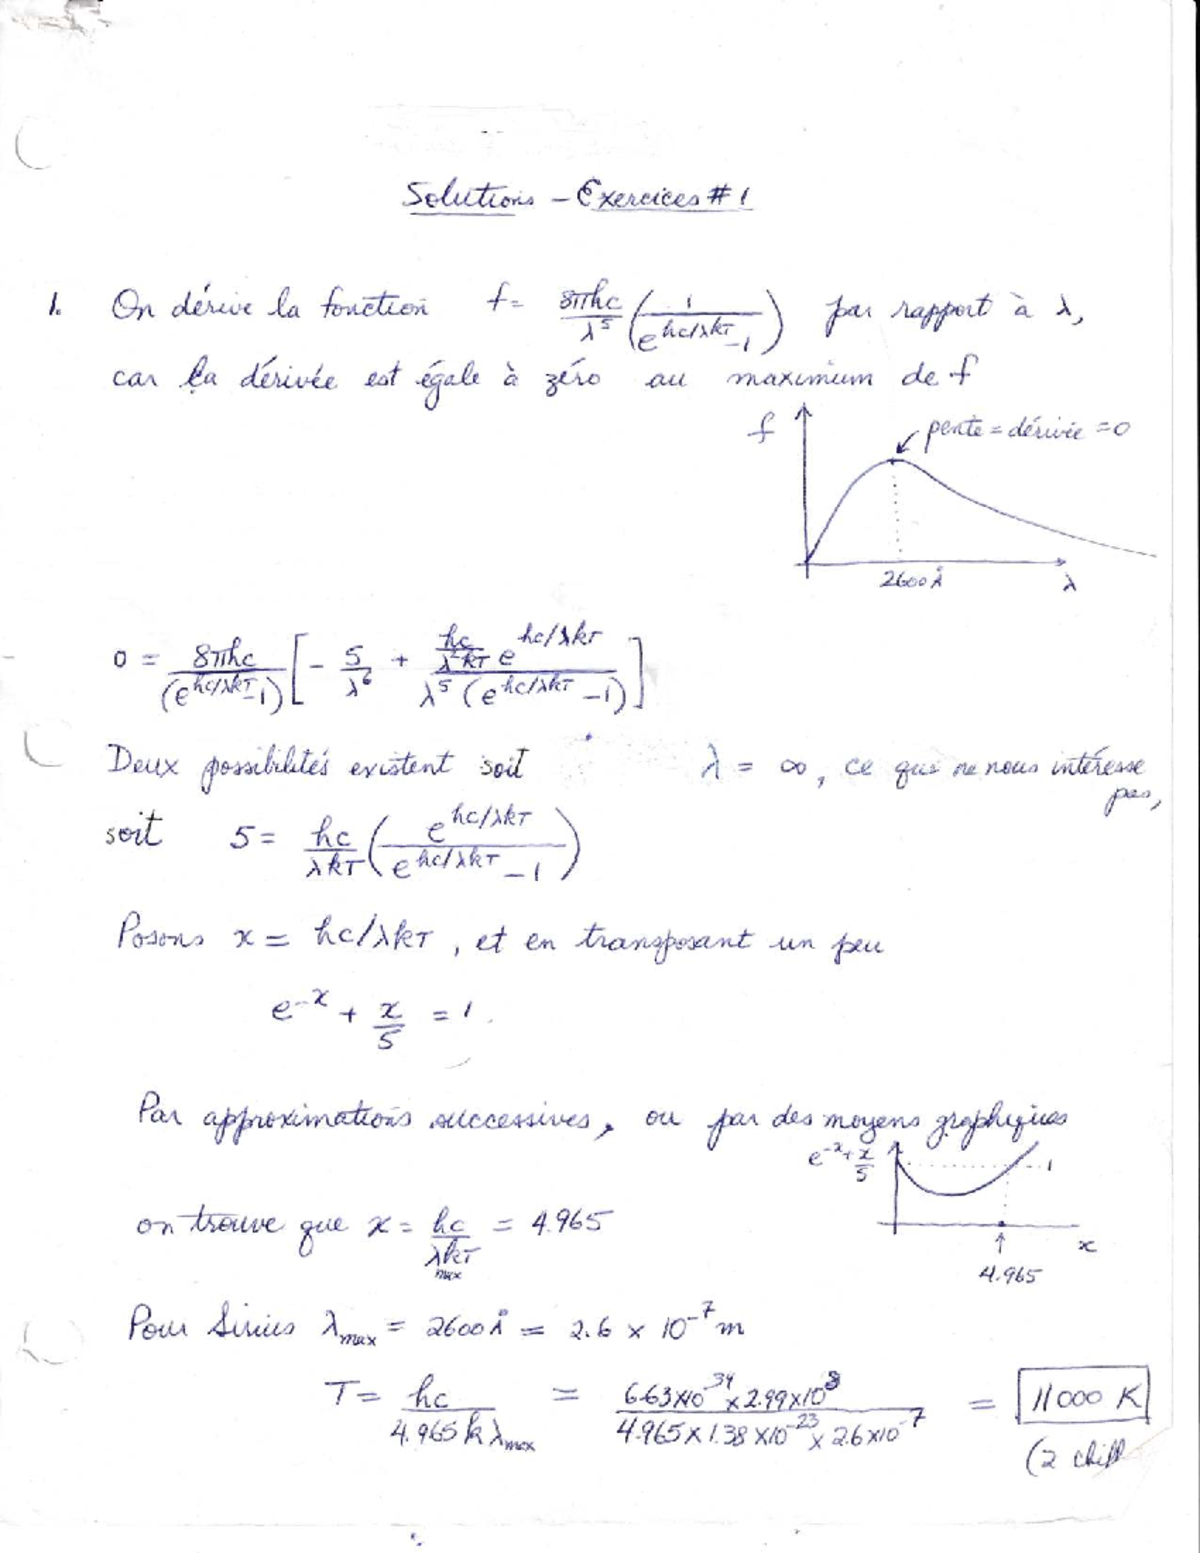 Solutions – Exercices # 1
1. On dérive la fonction f = 8πhc/λ⁵ (1/(e^{hc/λkT} – 1)) par rapport à λ,
car la dérivée est égale à zéro au maximum de f
f pente = dérivée = 0
2600 Å λ
0 = 8πhc/(e^{hc/λkT} – 1) [ – 5/λ⁶ + (hc/λ²kT e^{hc/λkT})/(λ⁵ (e^{hc/λkT} – 1)) ]
Deux possibilités existent soit λ = ∞, ce qui ne nous intéresse
pas,
soit 5 = hc/λkT (e^{hc/λkT}/(e^{hc/λkT} – 1))
Posons x = hc/λkT, et en transposant un peu
e^{-x} + x/5 = 1.
Par approximations successives, ou par des moyens graphiques
e^{-x} + x/5 1
on trouve que x = hc/λ_{max}kT = 4.965
x
4.965
Pour Sirius λ_{max} = 2600 Å = 2.6 × 10^{-7} m
T = hc/(4.965 k λ_{max}) = (6.63×10^{-34} × 2.99×10^{8})/(4.965 × 1.38×10^{-23} × 2.6×10^{-7}) = 11000 K
(2 chiff